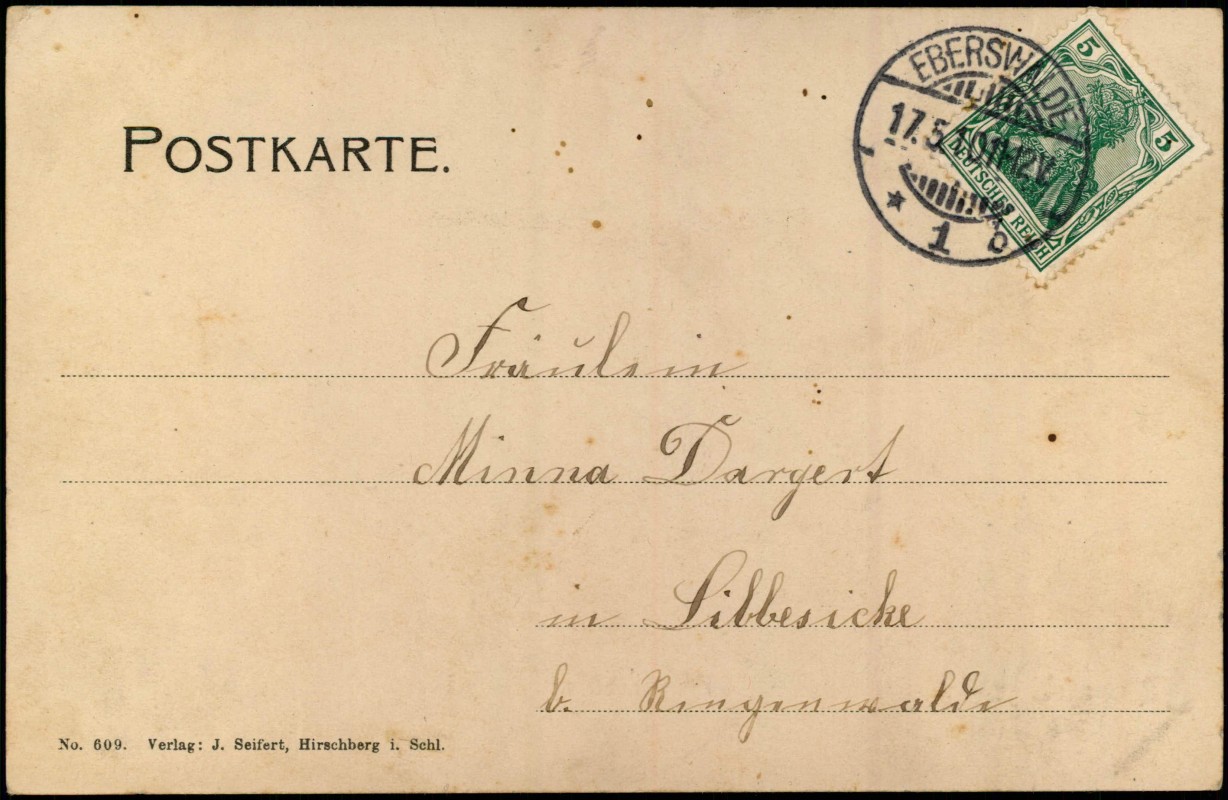 POSTKARTE.
EBERSWALDE
17.5. 11-12V.
* 1 b
5
5
DEUTSCHES REICH
Fräulein
Minna Dargert
in Libbesicke
b. Ringenwalde
No. 609. Verlag: J. Seifert, Hirschberg i. Schl.